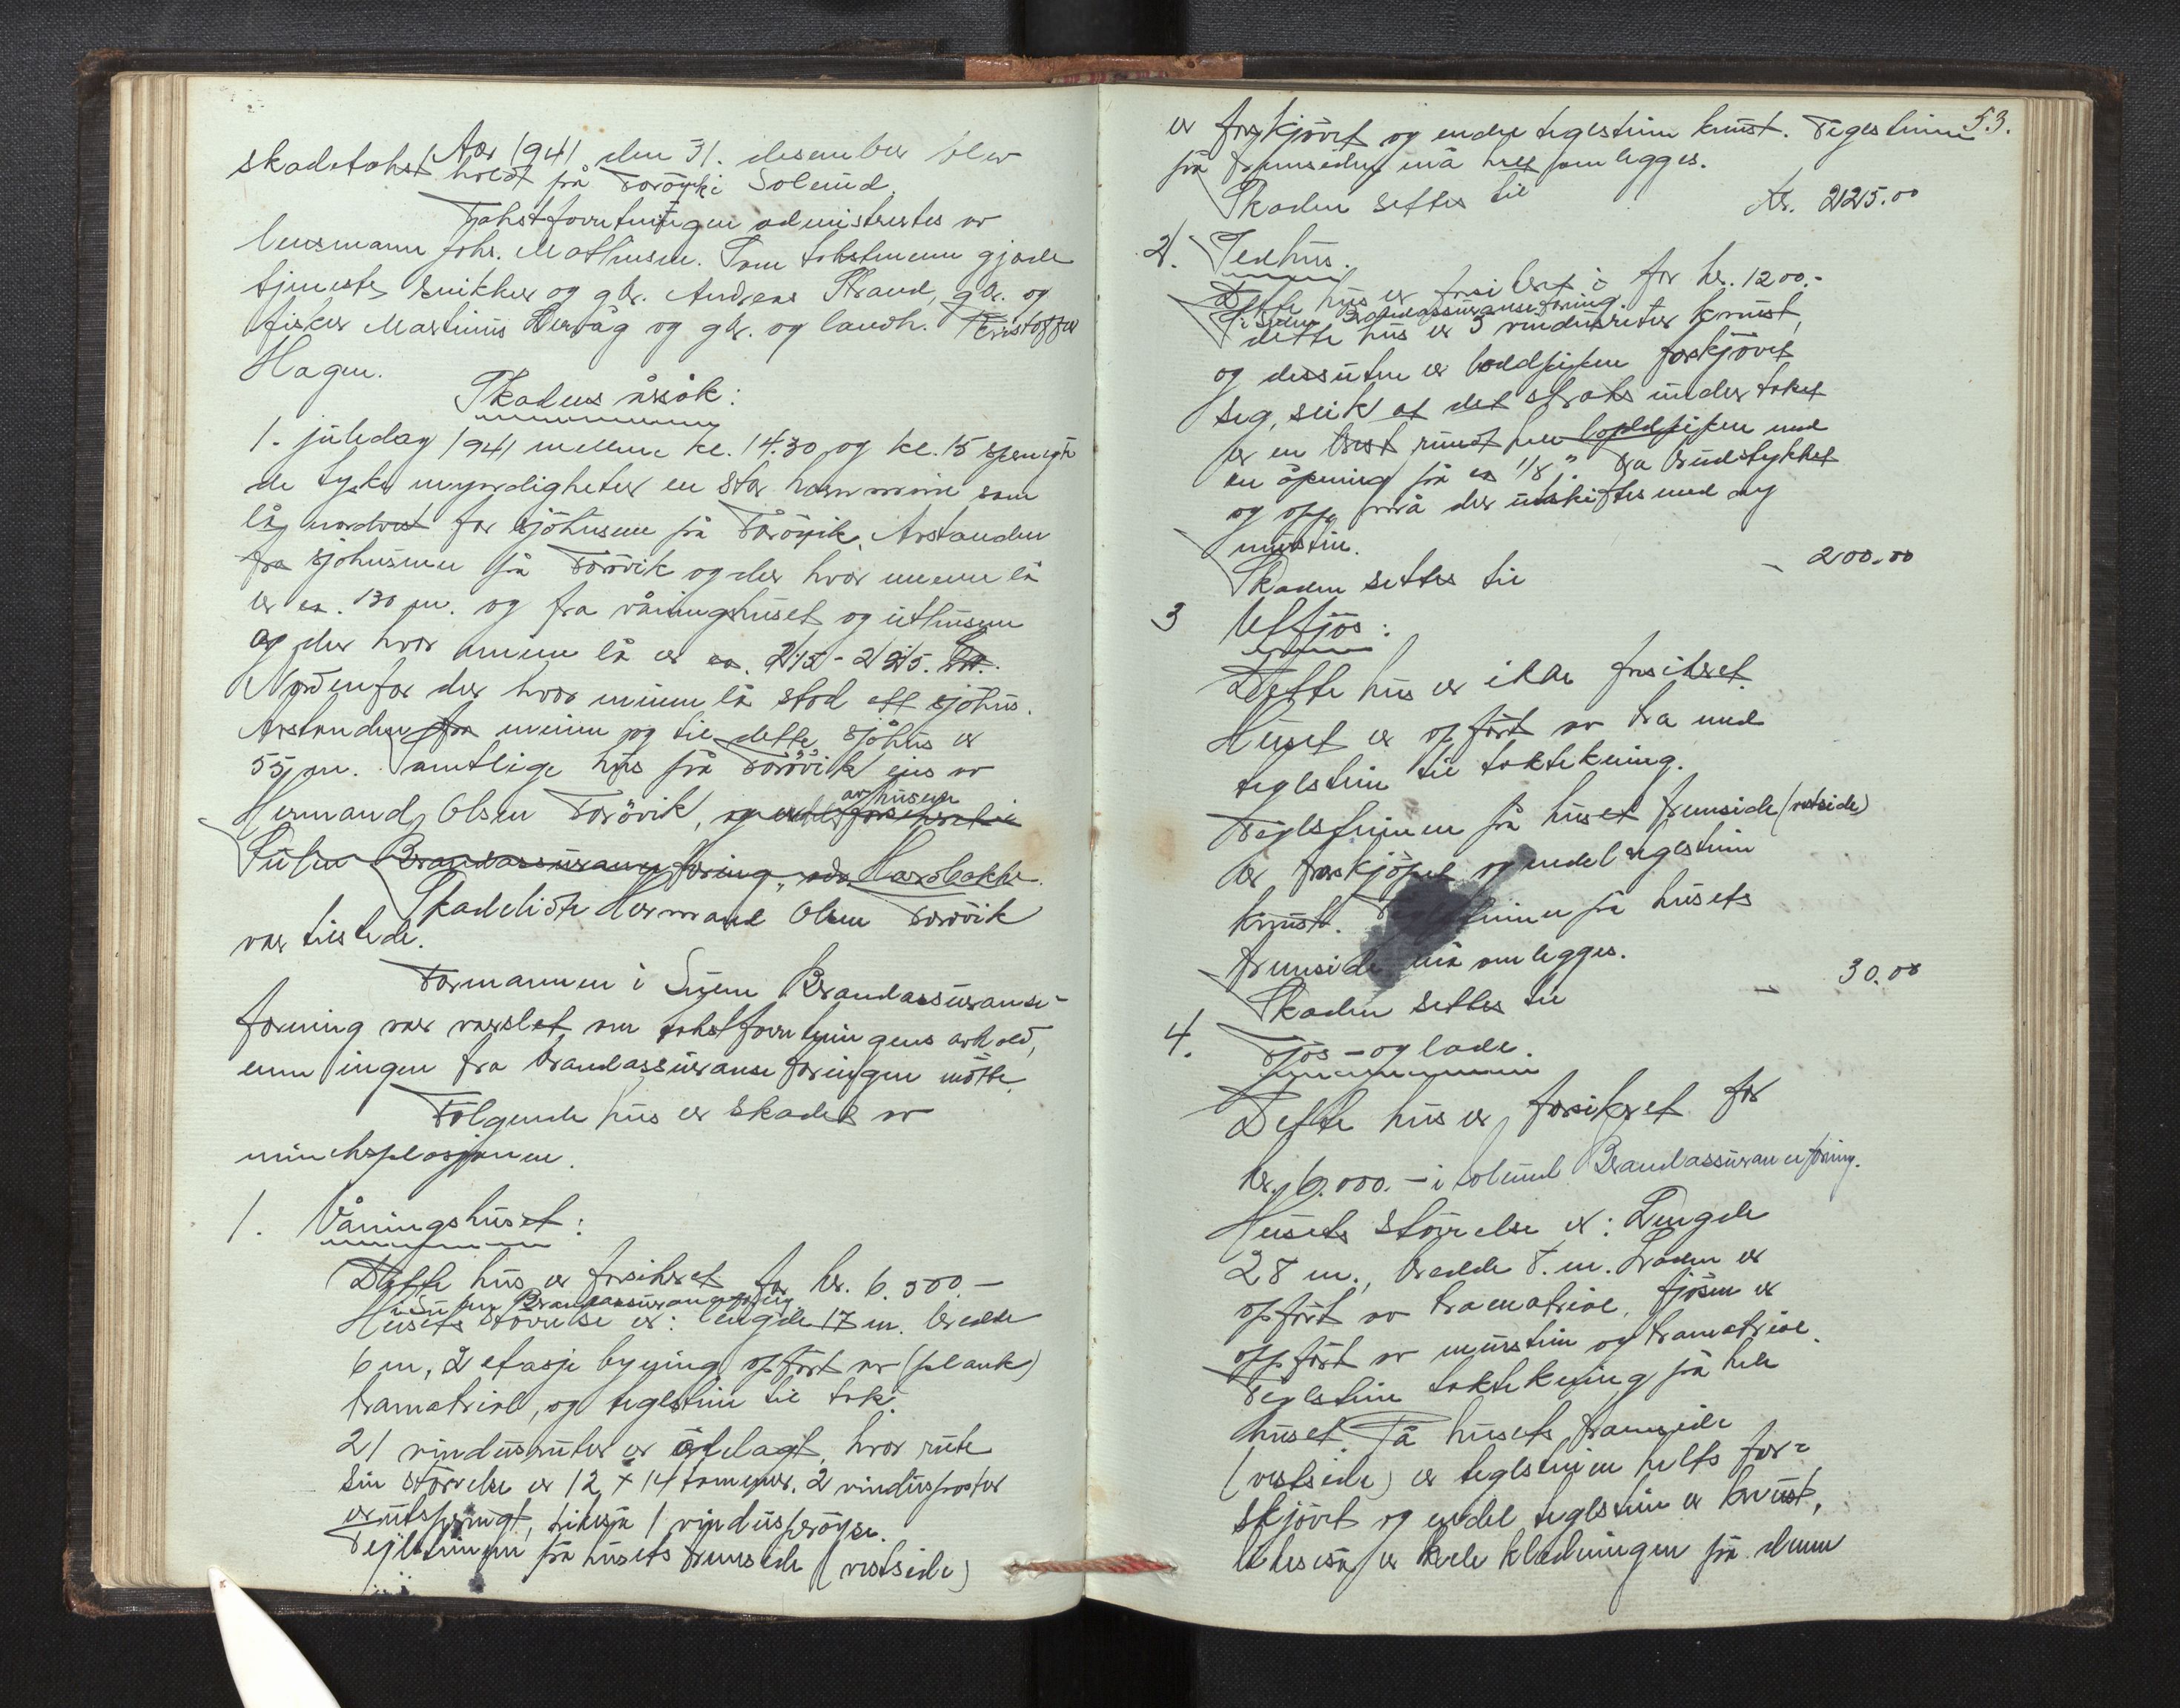 Aar 1941 den 31. desember blev
skadetakst holdt på Toröyki Solund.
Takstforretningen administrertes av
lensmann Johs. Mathisen. Som takstmenn gjorde
tjeneste snikker og gbr. Andreas Strand, gbr. og
fisker Martinus Leervåg og gbr. og landh. Kristoffer
Hagen.
Skadens årsak:
1. juledag 1941 mellem kl. 14.30 og kl. 15 sprengte
de tyske myndigheter en stor hornmine som
lå nordvest for sjöhusene på Toröyik. Avstanden
fra sjöhusene på Torövik og der hvor minen lå
er ca. 130 m. og fra våningshuset og uthusene
og der hvor minen lå er ca. 215-225.
Nordenfor der hvor minen lå stod ett sjöhus.
Avstanden fra minen og til dette sjöhus er
55 m. Samtlige hus på Torövik eies av
Hermand Olsen Torövik, og av husene
Sulen Brandassuranseforing, adr. Hardbakke.
Skadelidte Hermand Olsen Torövik
var tilstede.
Formannen i Sulen Brandassuranse-
forening var varslet om takstforretningens avhold,
men ingen fra brandassuranseforingen mötte.
Fölgende hus er skadet av
mineksplosjonen.
1. Våningshuset:
Dette hus er forsikret for kr. 6.500.-
i Sulen Brandassuranseforing
Husets störrelse er: lengde 17 m. bredde
6 m, 2 etasje bygning opfört av (plank)
tramatriel, og teglstein til tak.
21 vindusruter er ödelagt, hvor rute
sin störrelse er 12 x 14 tommer. 2 vinduspostor
er utsprengt, likeså 1 vindussprösse.
Teglsteinen på husets fremside (vestside)
53.
er forskjövet og endre teglstein knust. Teglsteinen
på fremsiden må hel omlegges.
Skaden settes til kr. 225.00
2. Ieldhus.
Dette hus er forsikret i for kr. 1200.-
i Sulen Brandassuranseforing.
I dette hus er 3 vindusruter knust,
og dessuten er loddpipen forskjövet
seg, slik at det straks under taket
er en brest rundt hele loddpipen med
en åpning på ca 1/8". Fra brudstykket
og opp må der utskiftes med ny
murstein.
Skaden settes til - 200.00
3 Utfjös:
Dette hus er ikke forsikret.
Huset er opfört av tra med
teglstein til taktekning.
Teglsteinen på huset fremside (vestside)
er forskjövet og endel teglstein
knust. på husets
fremside må omlegges.
Skaden settes til - 30.00
4. Fjös- og lade.
Dette hus er forsikret for
kr. 6.000.- i Solund Brandassuranseforing.
Husets störrelse er: Lengde
28 m., bredde 8. m. Laden er
opfört av tramatriel, fjösen er
oppfört av murstein og tramatriel.
Teglstein taktekning på hele
huset. På husets framside
(vestside) er teglsteinen helts for-
skjövet og endel teglstein er knust,
likeså er hele kledningen på denne